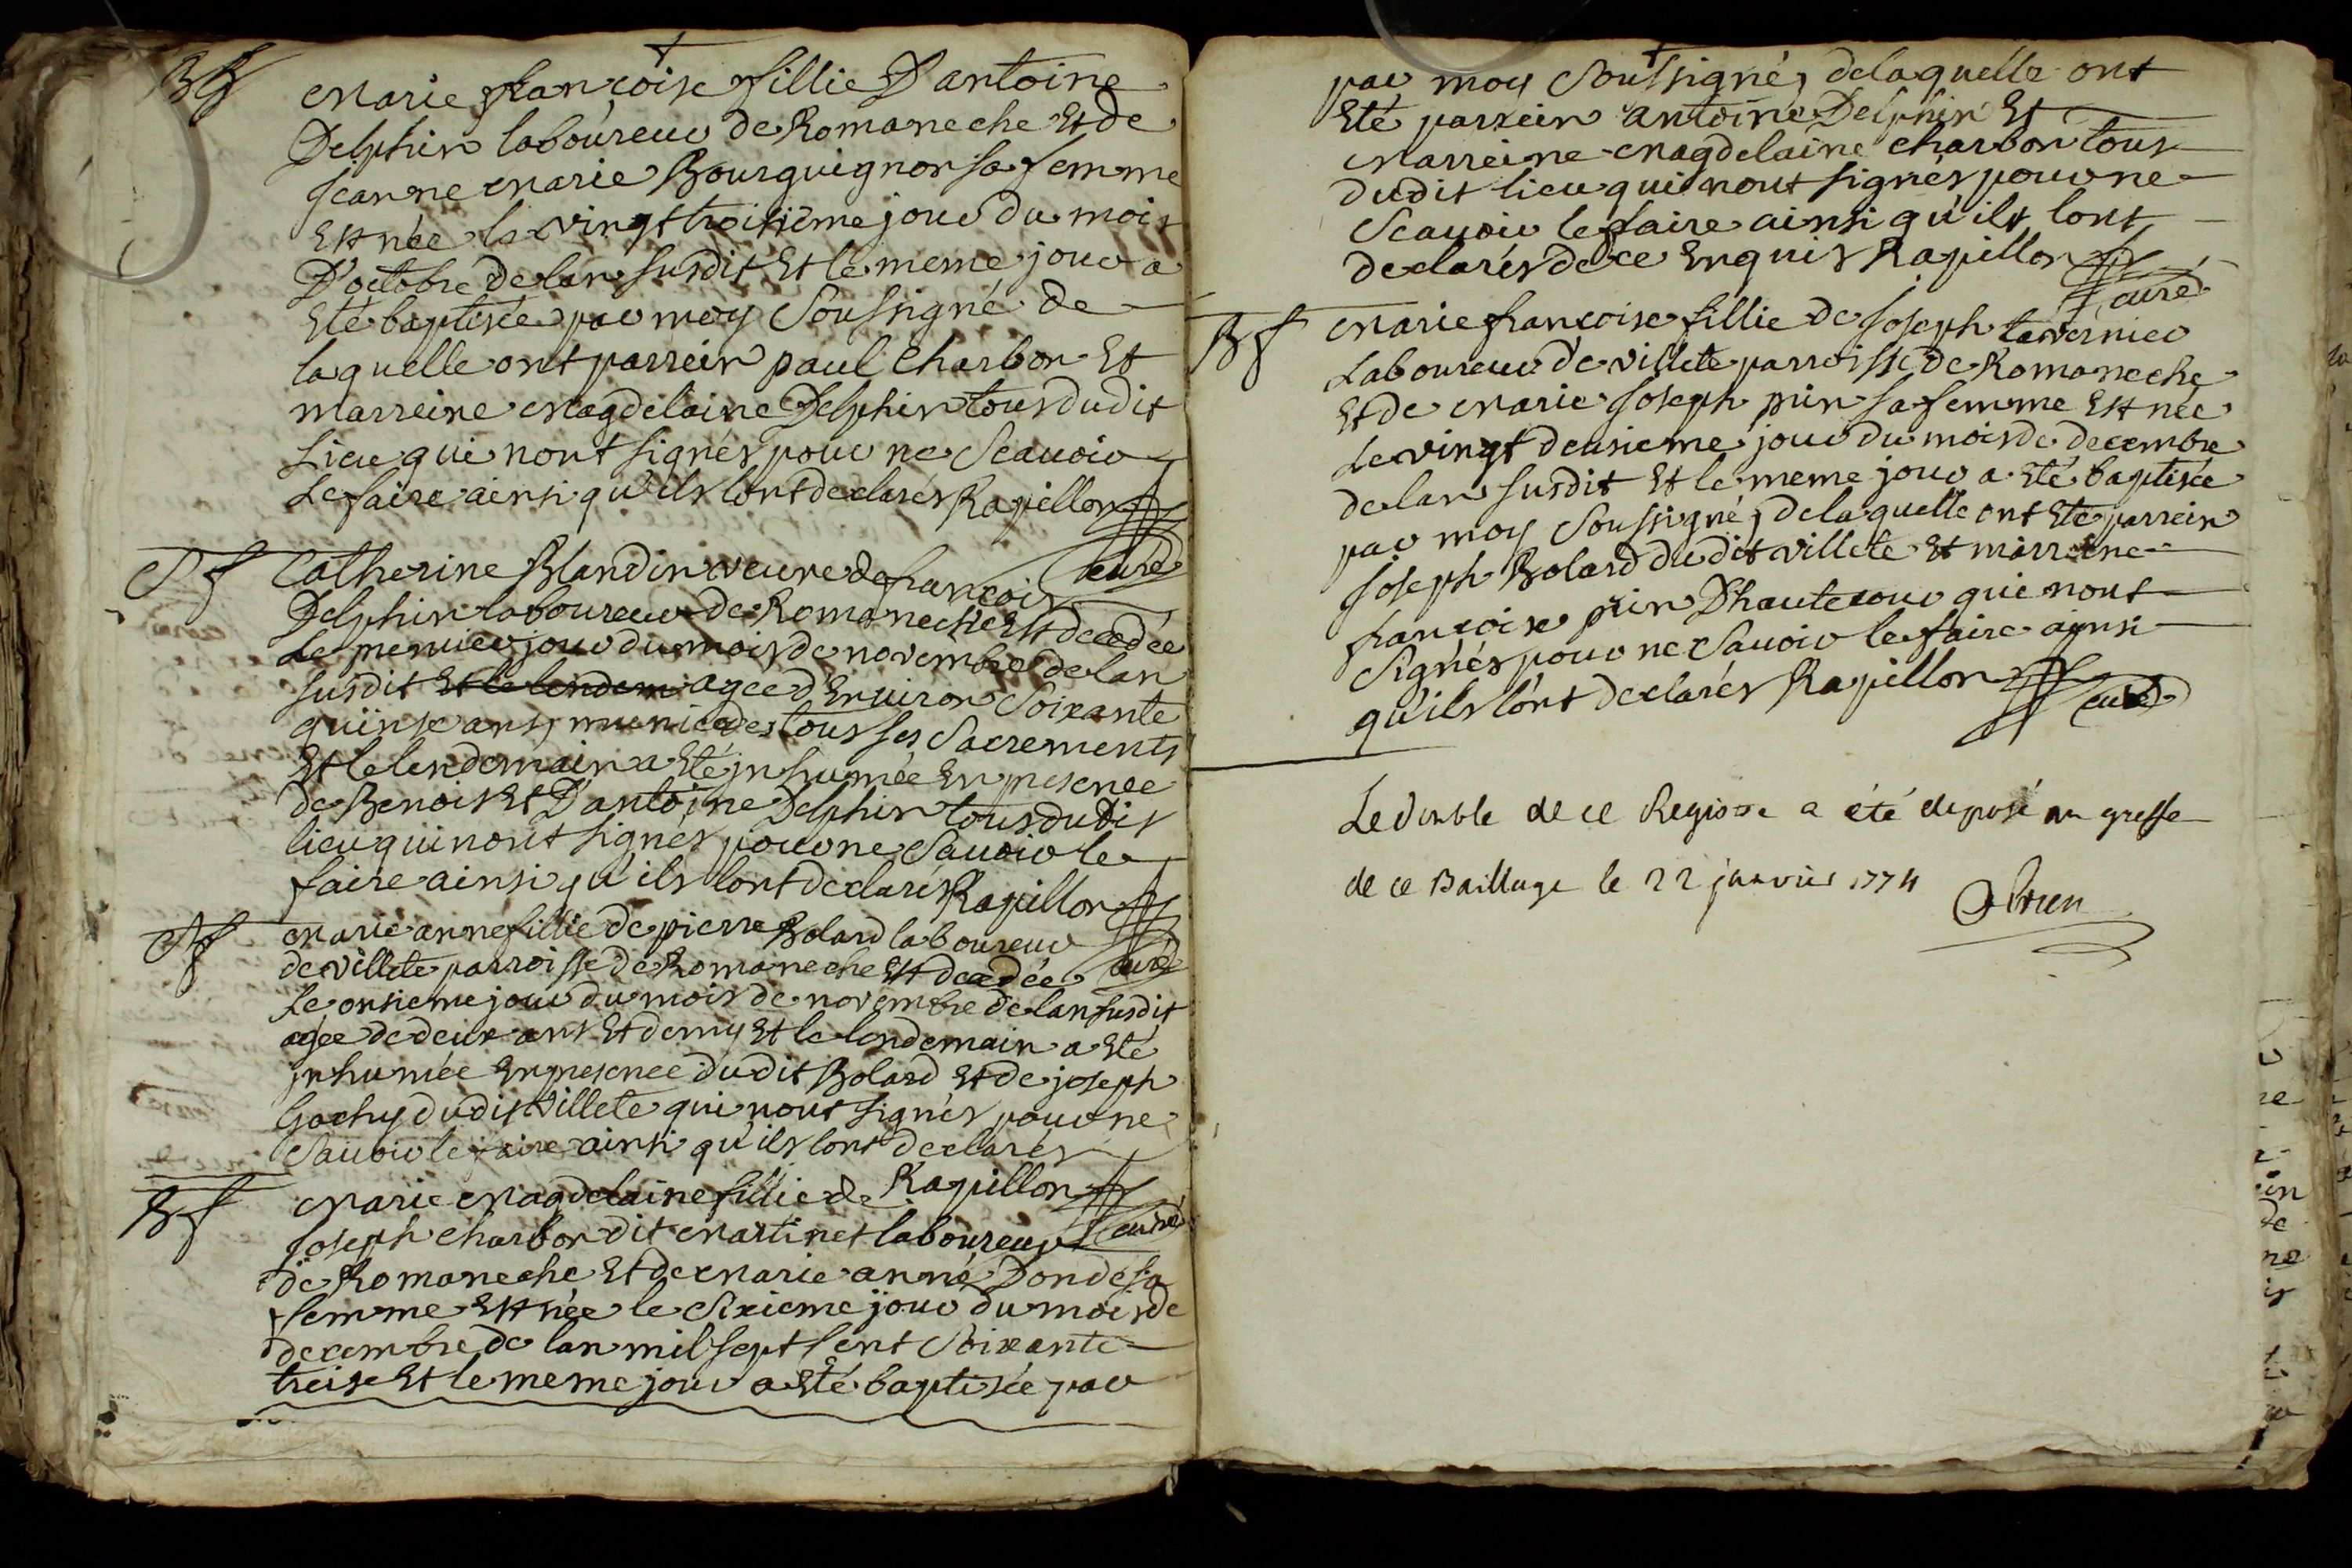 Bf
Marie françoise fillie D'antoine
Delphin laboureur de Romaneche Et de
Jeanne Marie Bourguignon sa femme
Est née le vingt troisième jour du mois
D'octobre de lan susdit Et le meme jour a
Eté baptisée par moy Soussigné de
laquelle ont parrein paul Charbon Et
marreine Magdelaine Delphin tous dudit
Lieu qui nont signés pour ne Scauoir
Le faire ainsi qu'ils lont declarés Rapillon
curé
Sf
Catherine Blandin veuve de françois
Delphin laboureur de Romaneche Est decedée
Le premier jour du mois de novembre de lan
susdit Et le lendem agee d'Enuiron Soixante
quinse ans, munie de tous ses Sacrements
Et le lendemain a Eté jnhumée En presence
de Benoist Et D'antoine Delphin tous dudit
lieu qui nont signés pour ne Sauoir le
faire ainsi qu'ils lont declarés Rapillon
curé
Sf
Marie anne fillie de pierre Bolard laboureur
de villete parroisse de Romaneche Est decedée
Le onsieme jour du mois de novembre de lan susdit
agee de deux ans Et demy Et le lendemain a Eté
jnhumée En presence dudit Bolard Et de joseph
Gochy dudit villete qui nont signés pour ne
Sauoir le faire ainsi qu'ils lont declarés
Rapillon
curé
Bf
Marie Magdelaine fillie de
Joseph Charbon dit Martinet laboureur
de Romaneche Et de Marie anne Donde sa
femme Est née le Sixieme jour du mois de
decembre de lan mil sept sent Soixante
treise Et le meme jour a Eté baptisée par
par moy Soussigné, de laquelle ont
Eté parrein antoine Delphin Et
Marreine Magdelaine Charbon tous
dudit lieu qui nont signés pour ne
Scauoir le faire ainsi qu'ils lont
declarés de ce Enquis Rapillon
curé
Bf
Marie françoise fillie de Joseph tavernier
Laboureur de villete parroisse de Romaneche
Et de Marie Joseph pin sa femme Est née
Le vingt deusieme jour du mois de decembre
de lan susdit Et le meme jour a Eté baptisée
par moy Soussigné, de laquelle ont Eté parrein
Joseph Bolard dudit villete Et marreine
françoise pin D'hautecour qui nont
Signés pour ne Sauoir le faire ainsi
qu'ils lont declarés Rapillon
curé
Le double de ce Registre a été deposé au greffe
de ce Baillage le 22 janvier 1774